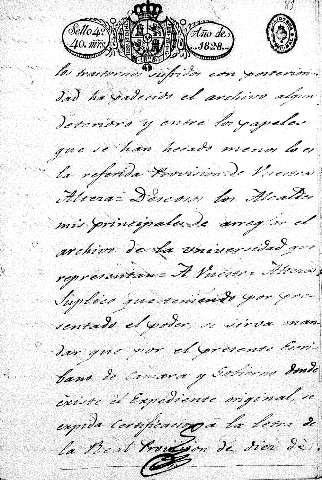 Sello 4º
40. mrs.
Año de
1828.
los trastornos sufridos con posteriori-
dad ha padecido el archivo algun
deterioro y entre los papeles
que se han hechado menos lo es
la referida Provision de Vuestra
Alteza= Deseosos los Alcaldes
mis principales de arreglar el
archivo de la universidad que
representan= A Vuestra Alteza
Suplico que teniendo por pre-
sentado el poder, se sirva man-
dar que por el presente Escri-
bano de Camara y Gobierno donde
existe el Expediente original, se
expida Certificacion á la letra de
la Real Provision de diez de